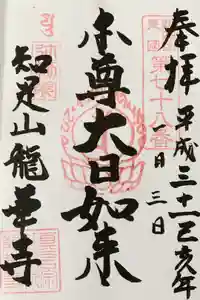 奉拝 平成三十一己亥年
一月三日
第七十八番
本尊大日如来
知足山龍華寺